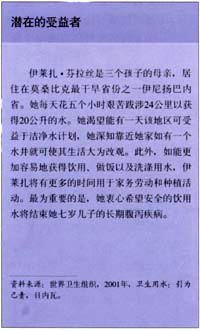 潜在的受益者
伊莱扎·芬拉丝是三个孩子的母亲，居
住在莫桑比克最干旱省份之一伊尼扬巴内
省。她每天花五个小时艰苦跋涉24公里以获
得20公升的水。她渴望能有一天该地区可受
益于洁净水计划，她深知靠近她家如有一个
水井就可使其生活大为改观。此外，如能更
加容易地获得饮用、做饭以及洗涤用水，伊
莱扎将有更多的时间用于家务劳动和种植活
动。最为重要的是，她衷心希望安全的饮用
水将结束她七岁儿子的长期腹泻疾病。
资料来源：世界卫生组织，2001年，卫生用水：引为
己责，日内瓦。